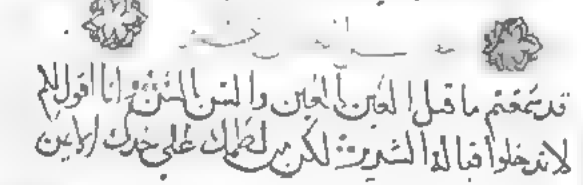 قد سمعتم ما قيل العين بالعين والسن بالسن وانا اقول لكم
لا تدخلوا قبالة الشرير لكن من لطمك على خدك الايمن